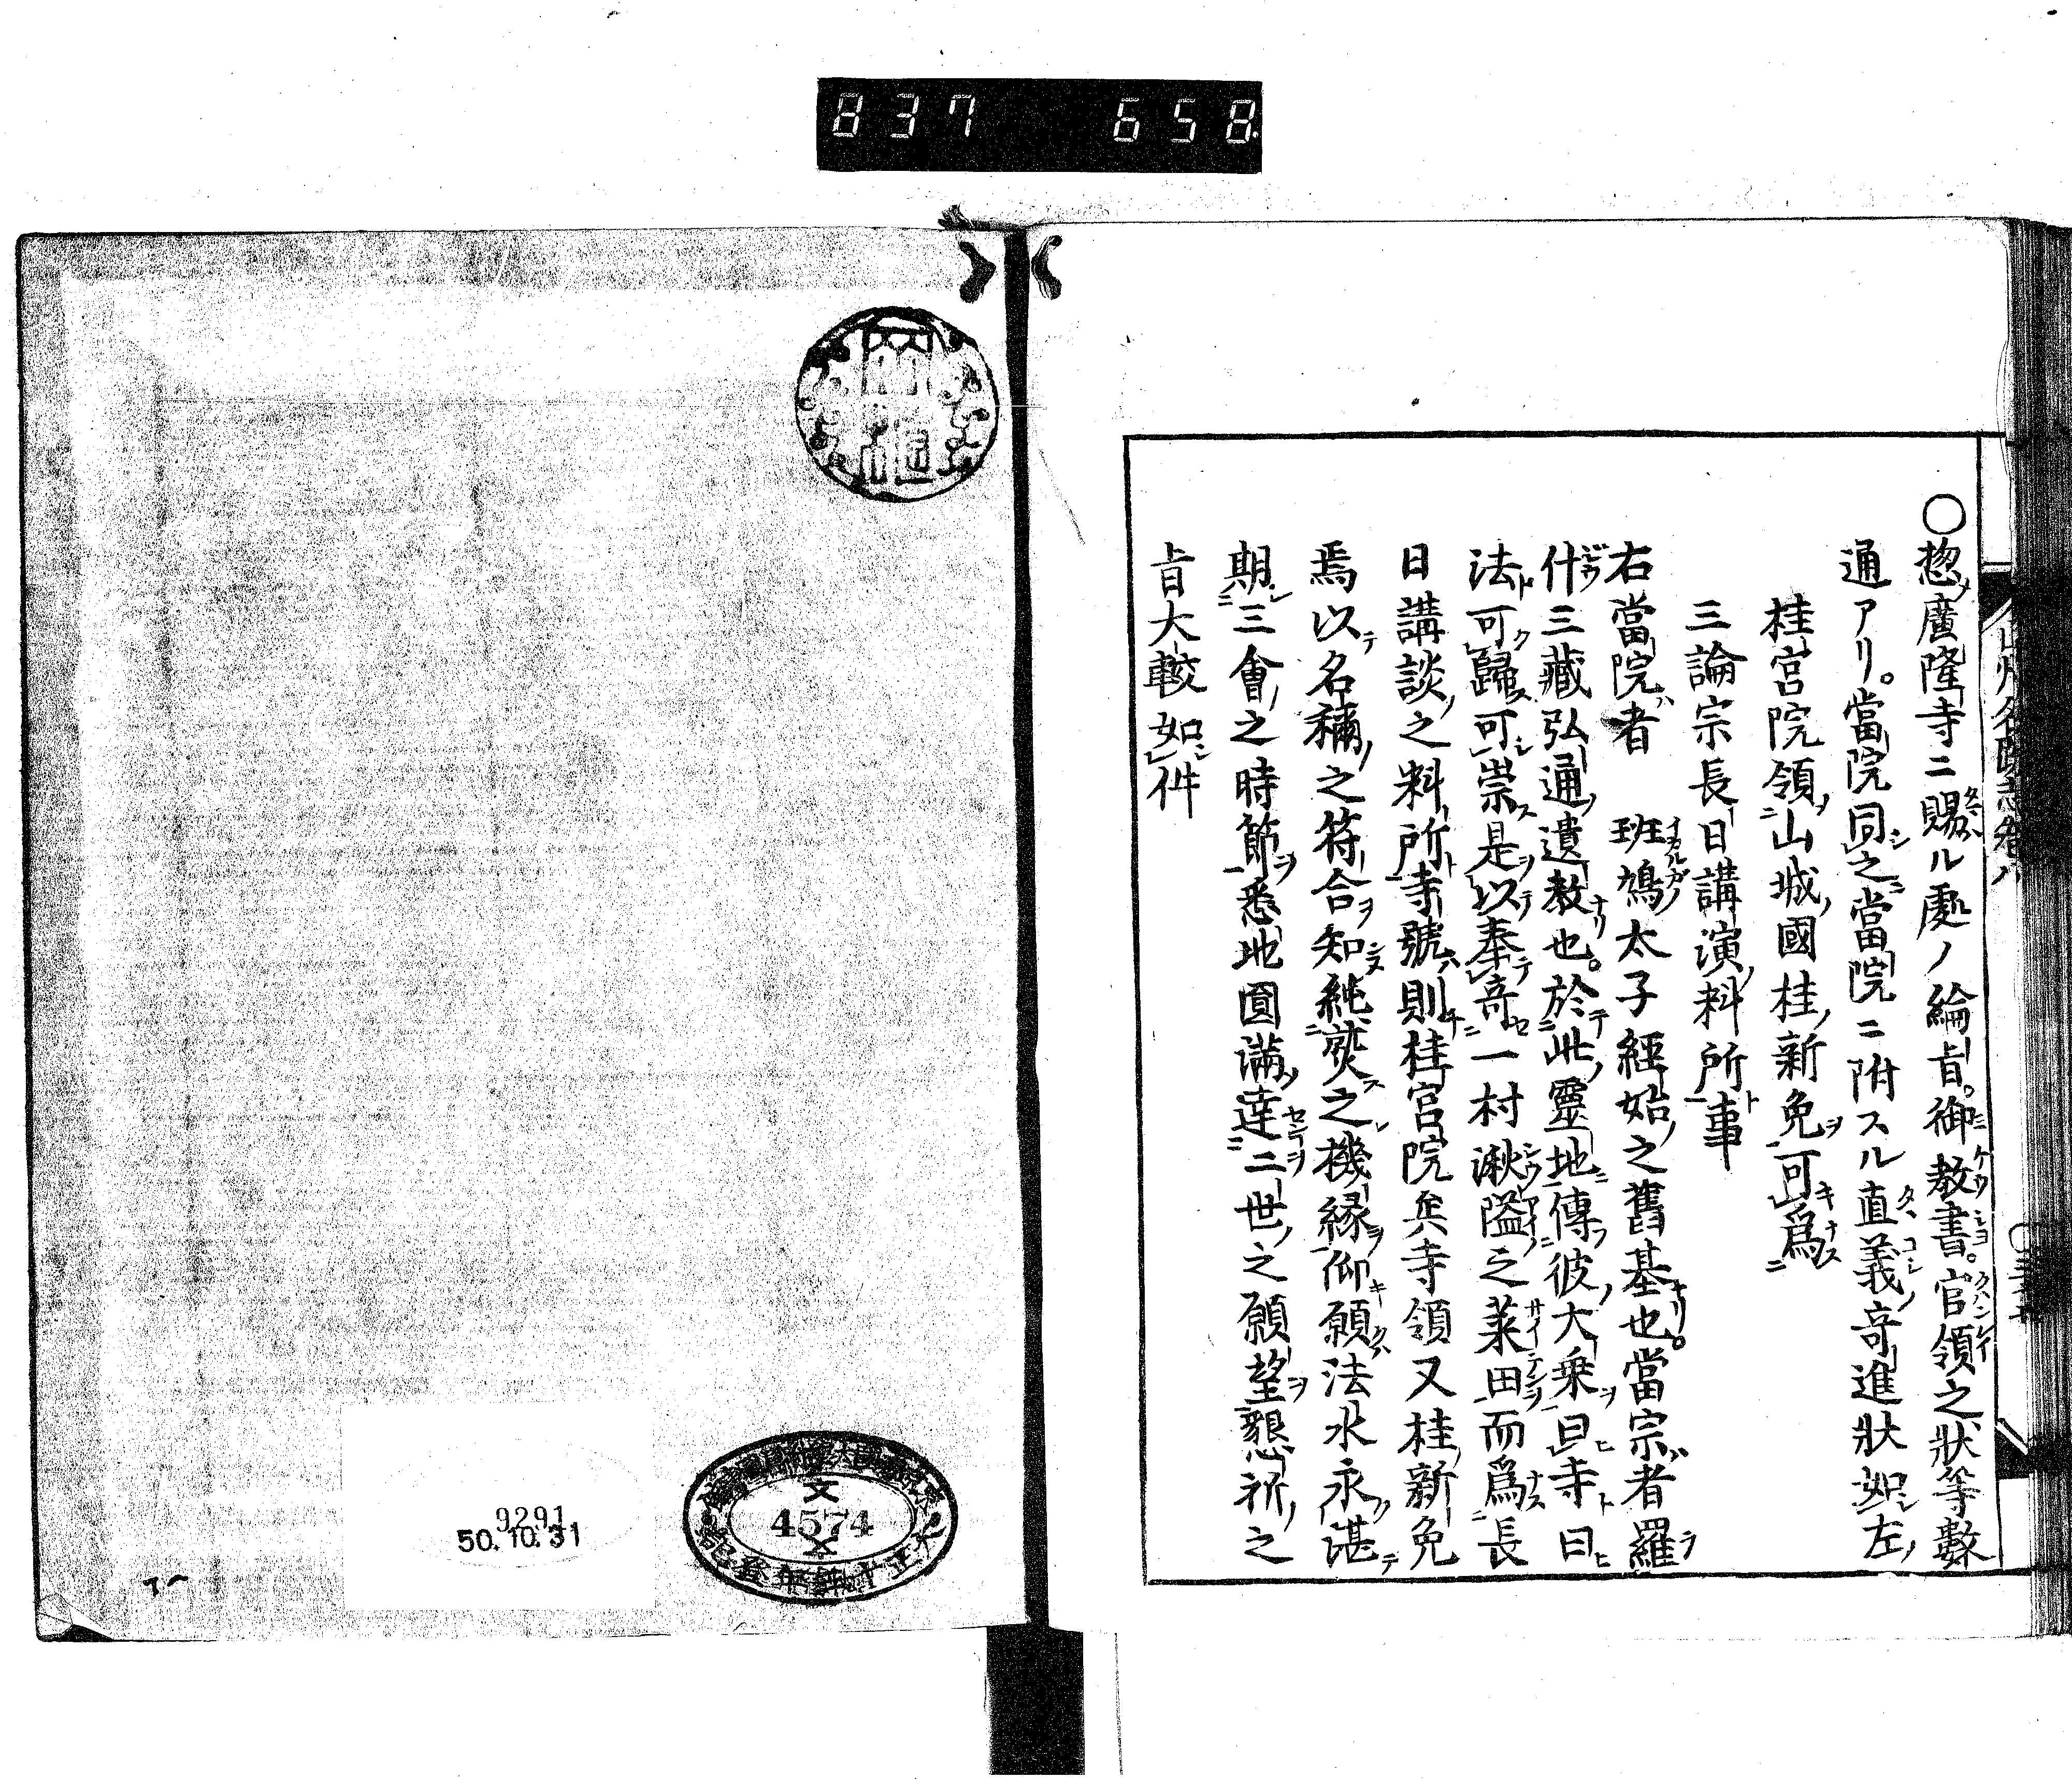 837 658
○惣廣隆寺ニ賜ル處ノ綸旨。御教書。官領之狀等數
通アリ。當院同之當院ニ附スル直義寄進狀如左
桂宮院領山城國桂新免可爲
三論宗長日講演料所事
右當院者 班鳩太子經始之舊基也。當宗者羅
什三藏弘通遺教也。於此靈地傳彼大乗曰寺曰
法可歸可崇是以奉寄一村湫隘之菜田而爲長
日講談之料所寺號則桂宮院矣寺領又桂新免
焉以名稱之符合知純熟之機縁仰願法水永湛
期三會之時節悉地圓滿達二世之願望懇祈之
旨大較如件
文
4574
9291
50.10.31